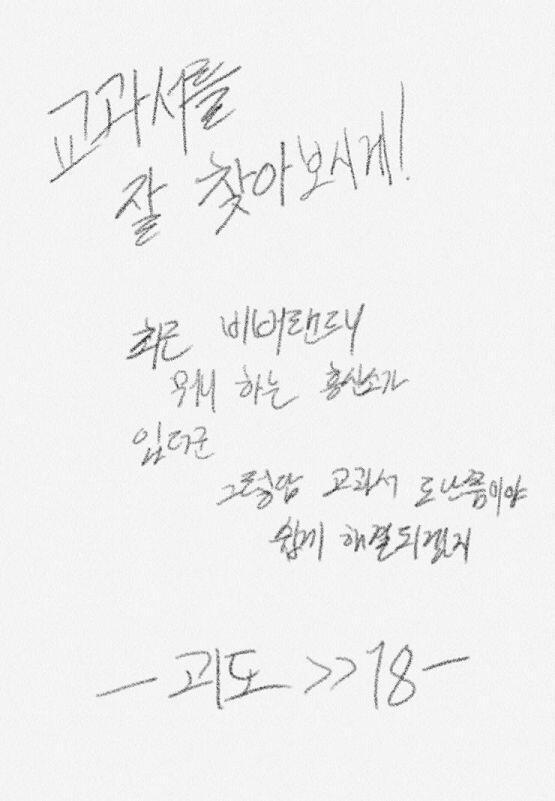 교과서를
잘 찾아보시게!
최근 비버랜드내
위시 하는 흥신소가
있더군
그렇담 교과서 도난쯤이야
쉽게 해결되겠지
- 괴도 >>18 -